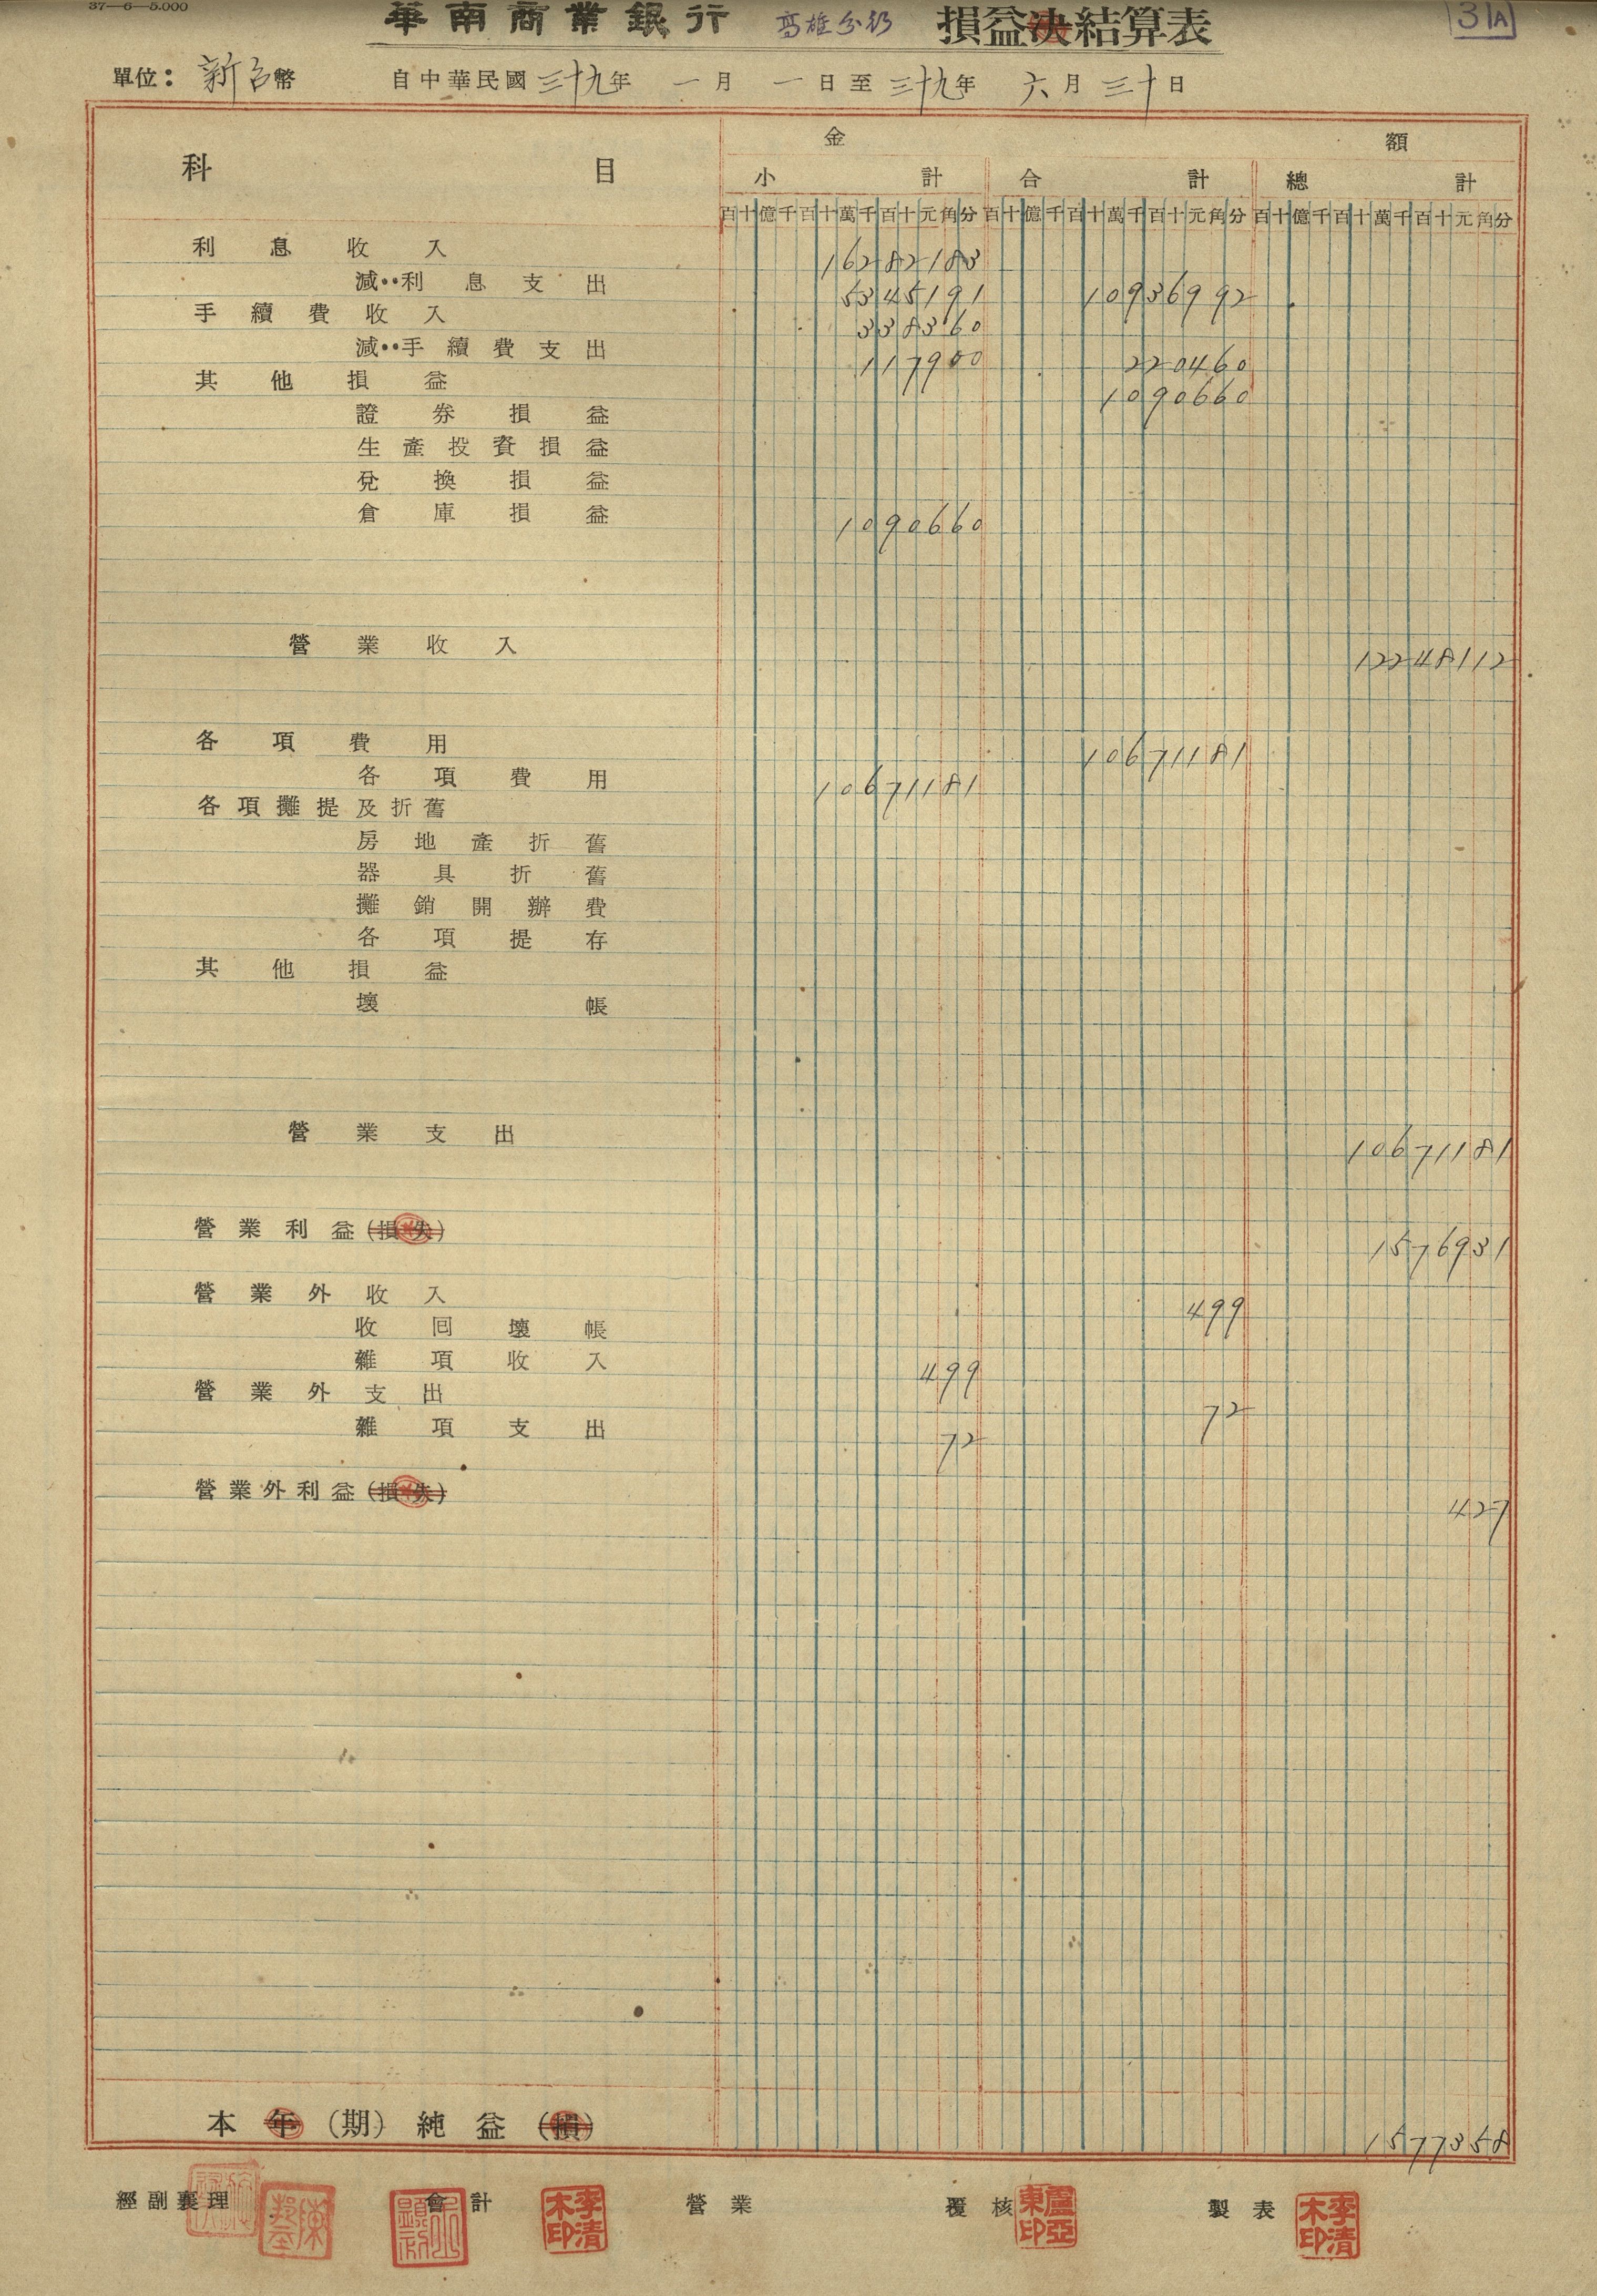 37—6—5.000
華南商業銀行 高雄分行 損益決結算表 31A
單位：新台幣 自中華民國三十九年 一月 一日至三十九年 六月三十日
科 目 金 額
小 計 合 計 總 計
百十億千百十萬千百十元角分 百十億千百十萬千百十元角分 百十億千百十萬千百十元角分
利息收入 16282183
減：利息支出 5345191 10936992
手續費收入 338360
減：手續費支出 117900 220460
其他損益 1090660
證券損益
生產投資損益
兌換損益
倉庫損益 1090660
營業收入 12248112
各項費用 10671181
各項費用 10671181
各項攤提及折舊
房地產折舊
器具折舊
攤銷開辦費
各項提存
其他損益
壞帳
營業支出 10671181
營業利益(損失) 1576931
營業外收入 499
收回壞帳
雜項收入 499
營業外支出 72
雜項支出 72
營業外利益(損失) 427
本年(期)純益(損) 1577358
經副襄理 會計 李清木印 營業 覆核 盧亞東印 製表 李清木印